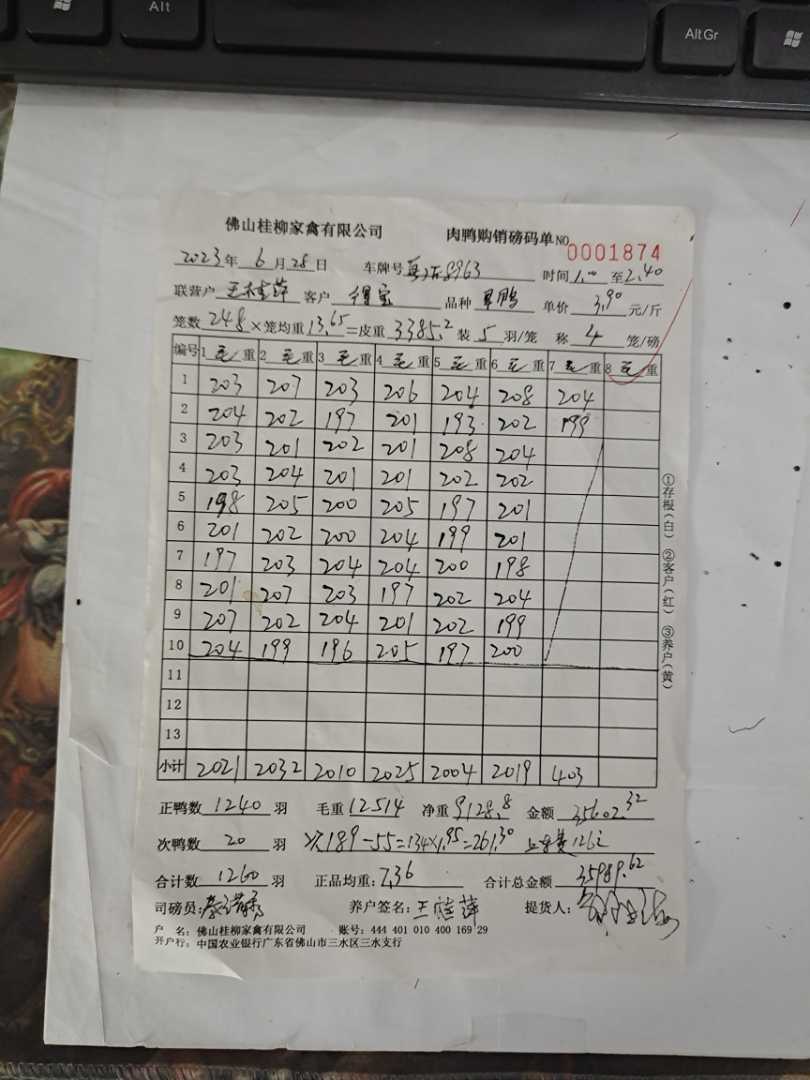 Alt
Alt Gr
佛山桂柳家禽有限公司 肉鸭购销磅码单NO 0001874
2023年 6月28日 车牌号 8963 时间1.00至2.40
联营户 王桂萍 客户 品种 单价 3.90 元/斤
笼数 248 ×笼均重 13.65 =皮重 3385.2 装 5 羽/笼 称 4 笼/磅
编号 1 毛/重 2 毛/重 3 毛/重 4 毛/重 5 毛/重 6 毛/重 7 毛/重 8 毛/重
1 203 207 203 206 204 208 204
2 204 202 197 201 193 202 199
3 203 201 202 201 208 204
4 203 204 201 201 202 202
5 198 205 200 205 197 201
6 201 202 200 204 199 201
7 197 203 204 204 200 198
8 201 207 203 197 202 204
9 207 202 204 201 202 199
10 204 199 196 205 197 200
11
12
13
小计 2021 2032 2010 2025 2004 2019 403
正鸭数 1240 羽 毛重 12514 净重 9128.8 金额 35602.32
次鸭数 20 羽 次189-55=134×1.95=261.30 上车费126元
合计数 1260 羽 正品均重: 7.36 合计总金额 35989.62
司磅员: 养户签名: 王桂萍 提货人:
户 名: 佛山桂柳家禽有限公司 账号: 444 401 010 400 169 29
开户行: 中国农业银行广东省佛山市三水区三水支行
①存根(白) ②客户(红) ③养户(黄)